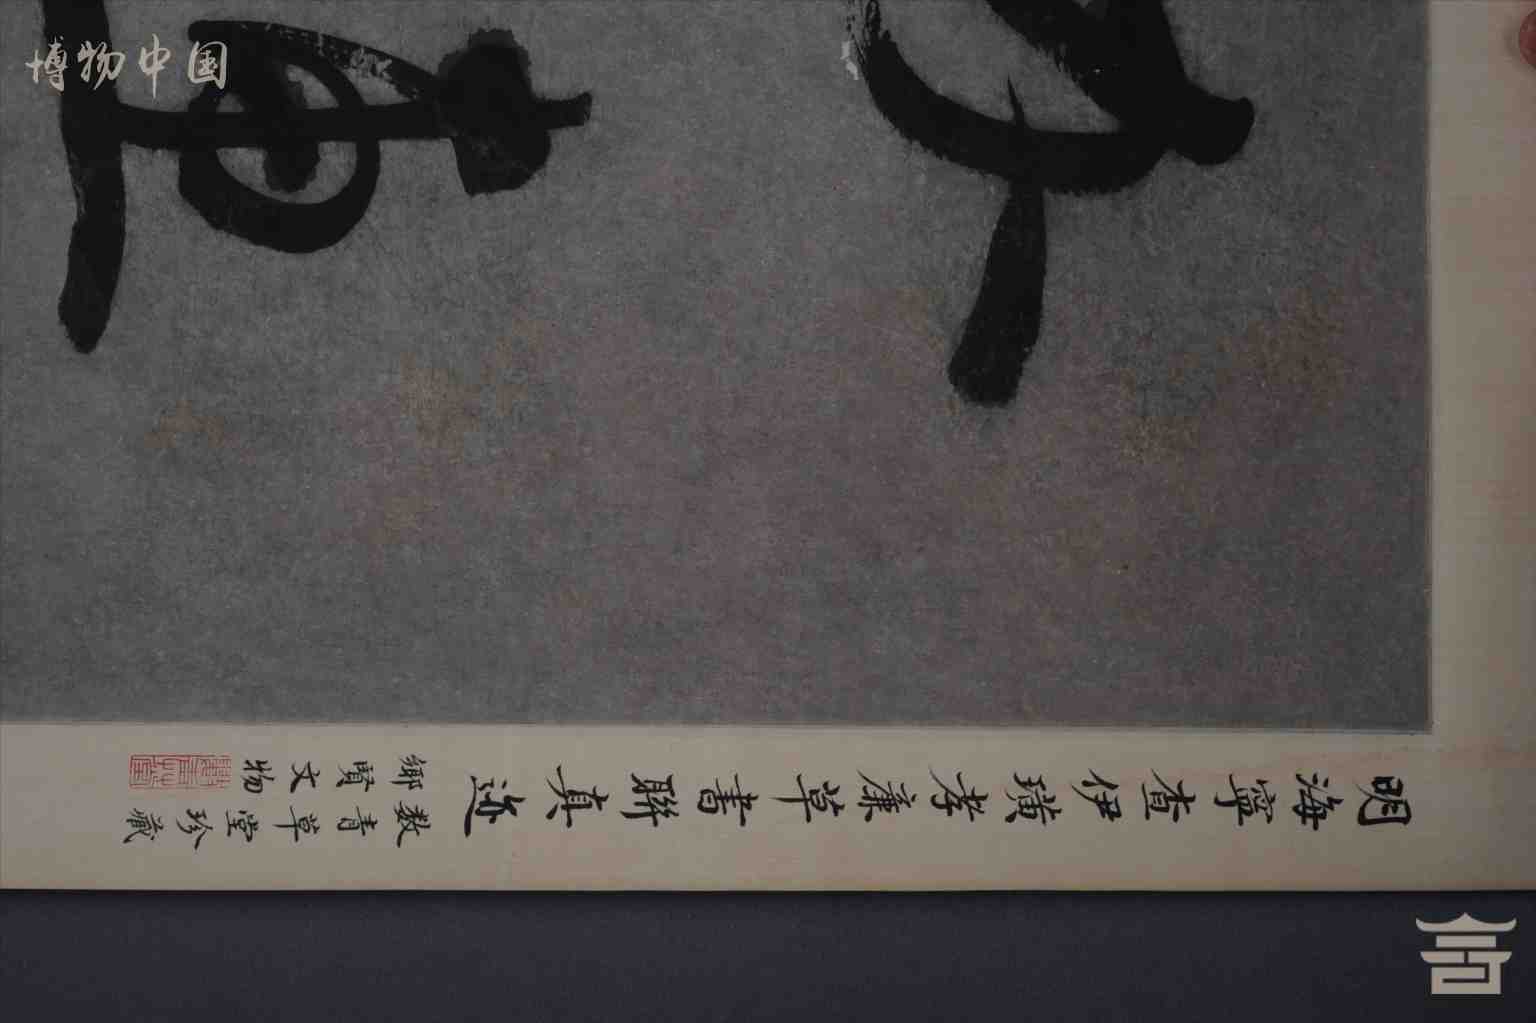 博物中国
明海寧查伊璜孝廉草書聯真迹
鄉賢文物
数青草堂珍藏